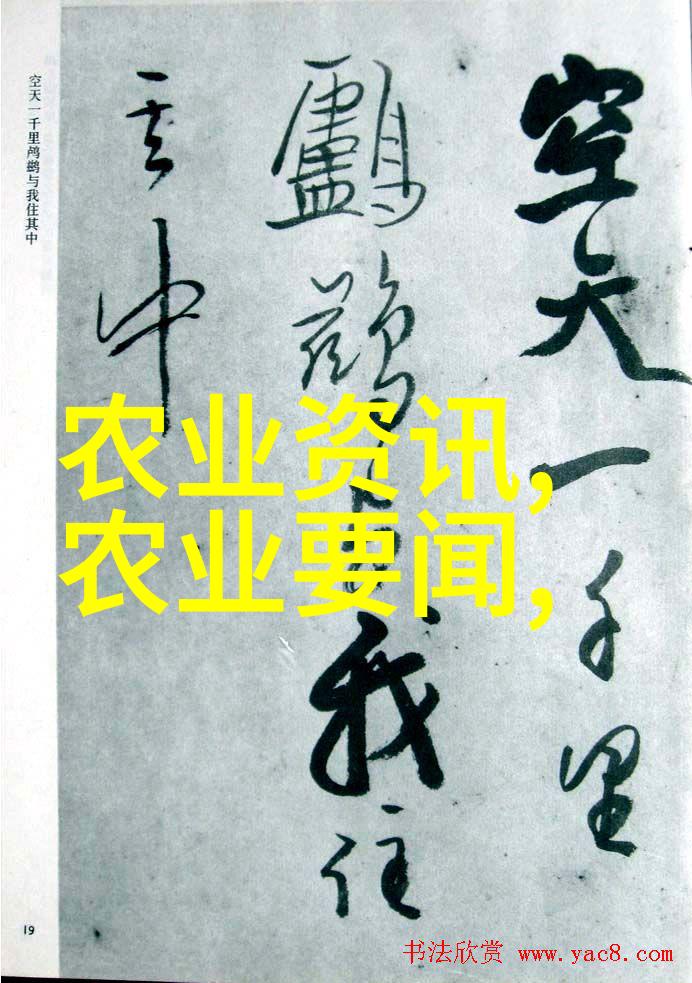 空天一千里
鸕鷀与我住
其中
空天一千里鸬鹚与我住其中
农业资讯,
农业要闻,
19
书法欣赏 www.yac8.com